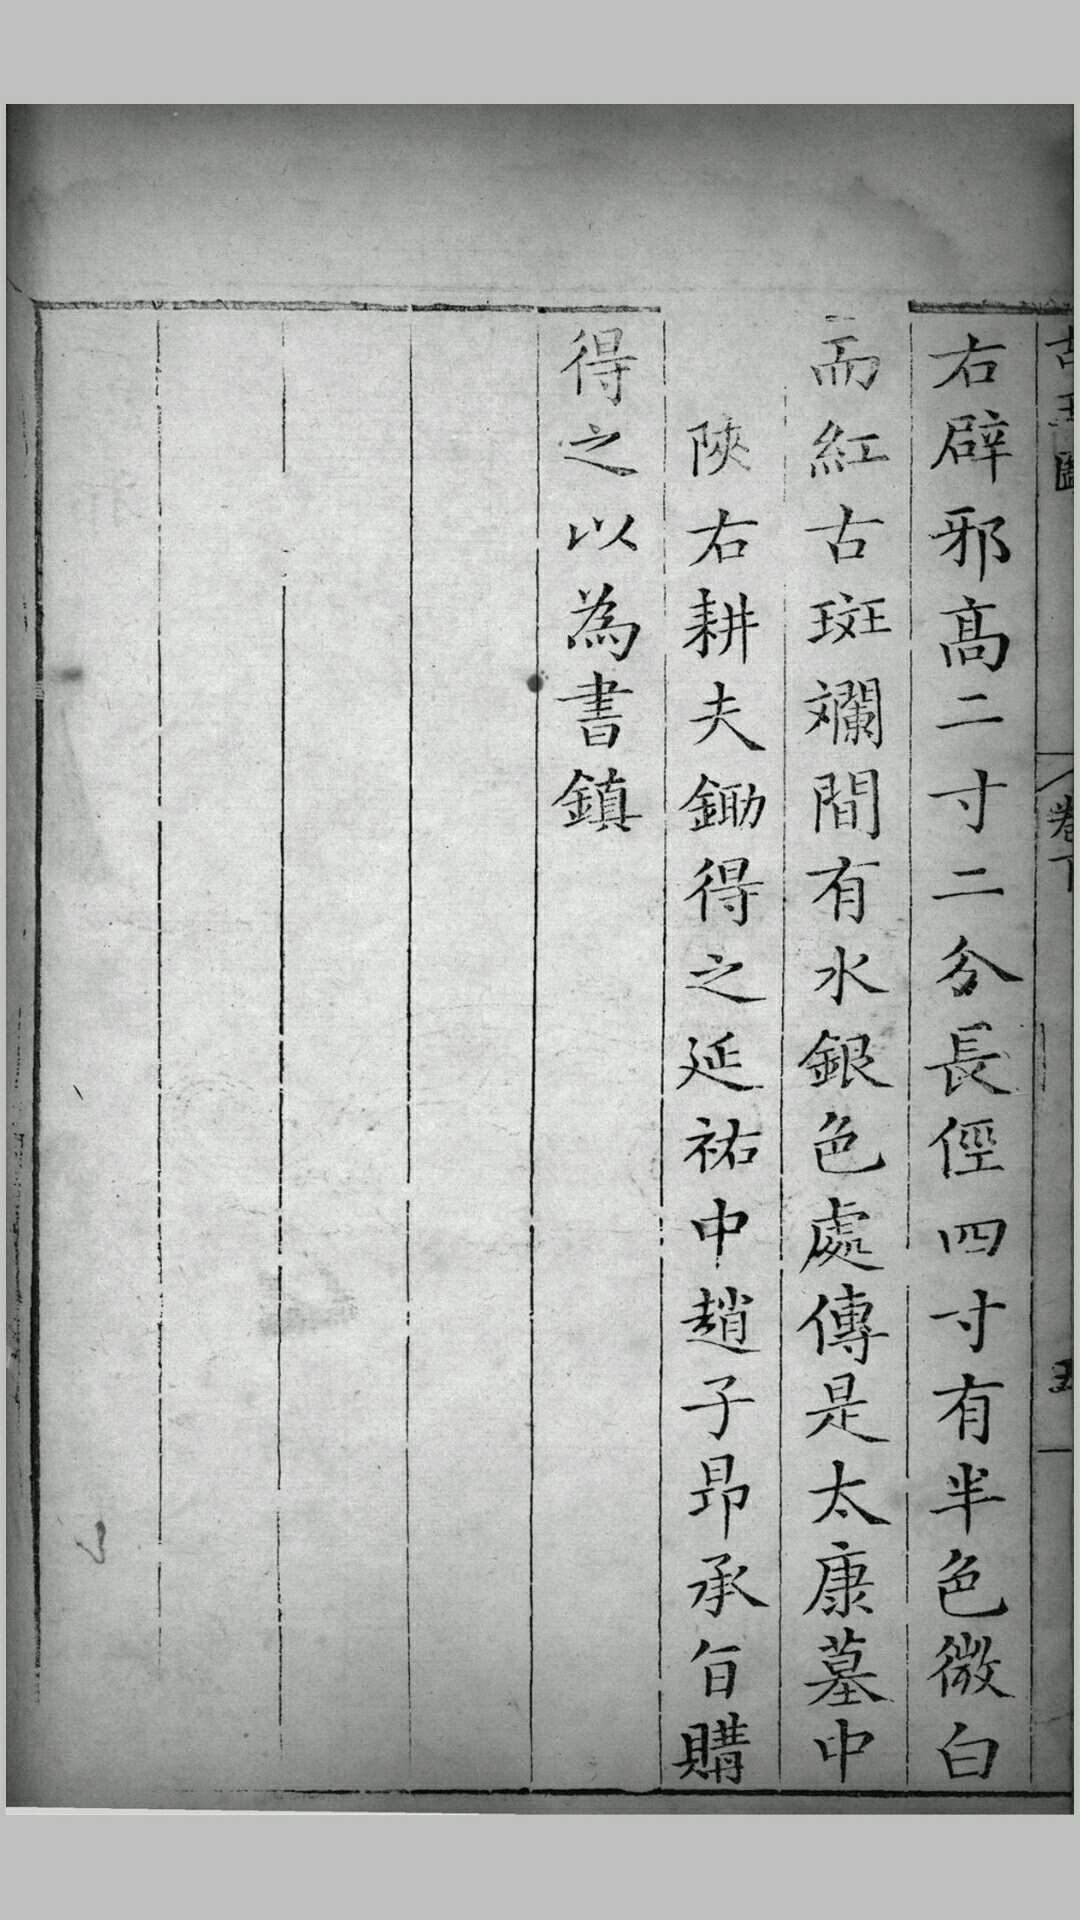 古玉圖
卷下
五
右辟邪高二寸二分長徑四寸有半色微白
而紅古斑斕間有水銀色處傳是太康墓中
陝右耕夫鋤得之延祐中趙子昂承旨購
得之以為書鎮